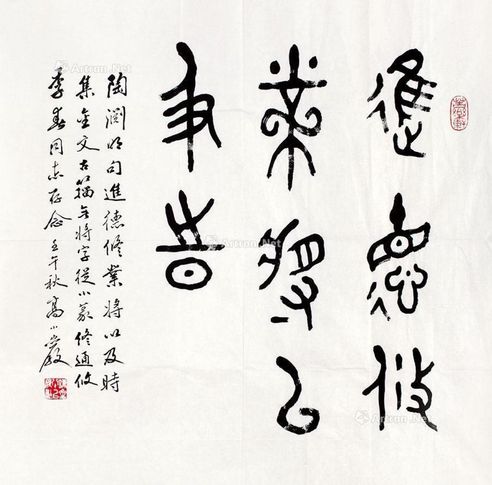 進德攸
業將以
及時
陶渊明句進德修業將以及時
集金文古籀无將字從小篆修通攸
季春同志存念壬午秋高小巖
Artron.Net